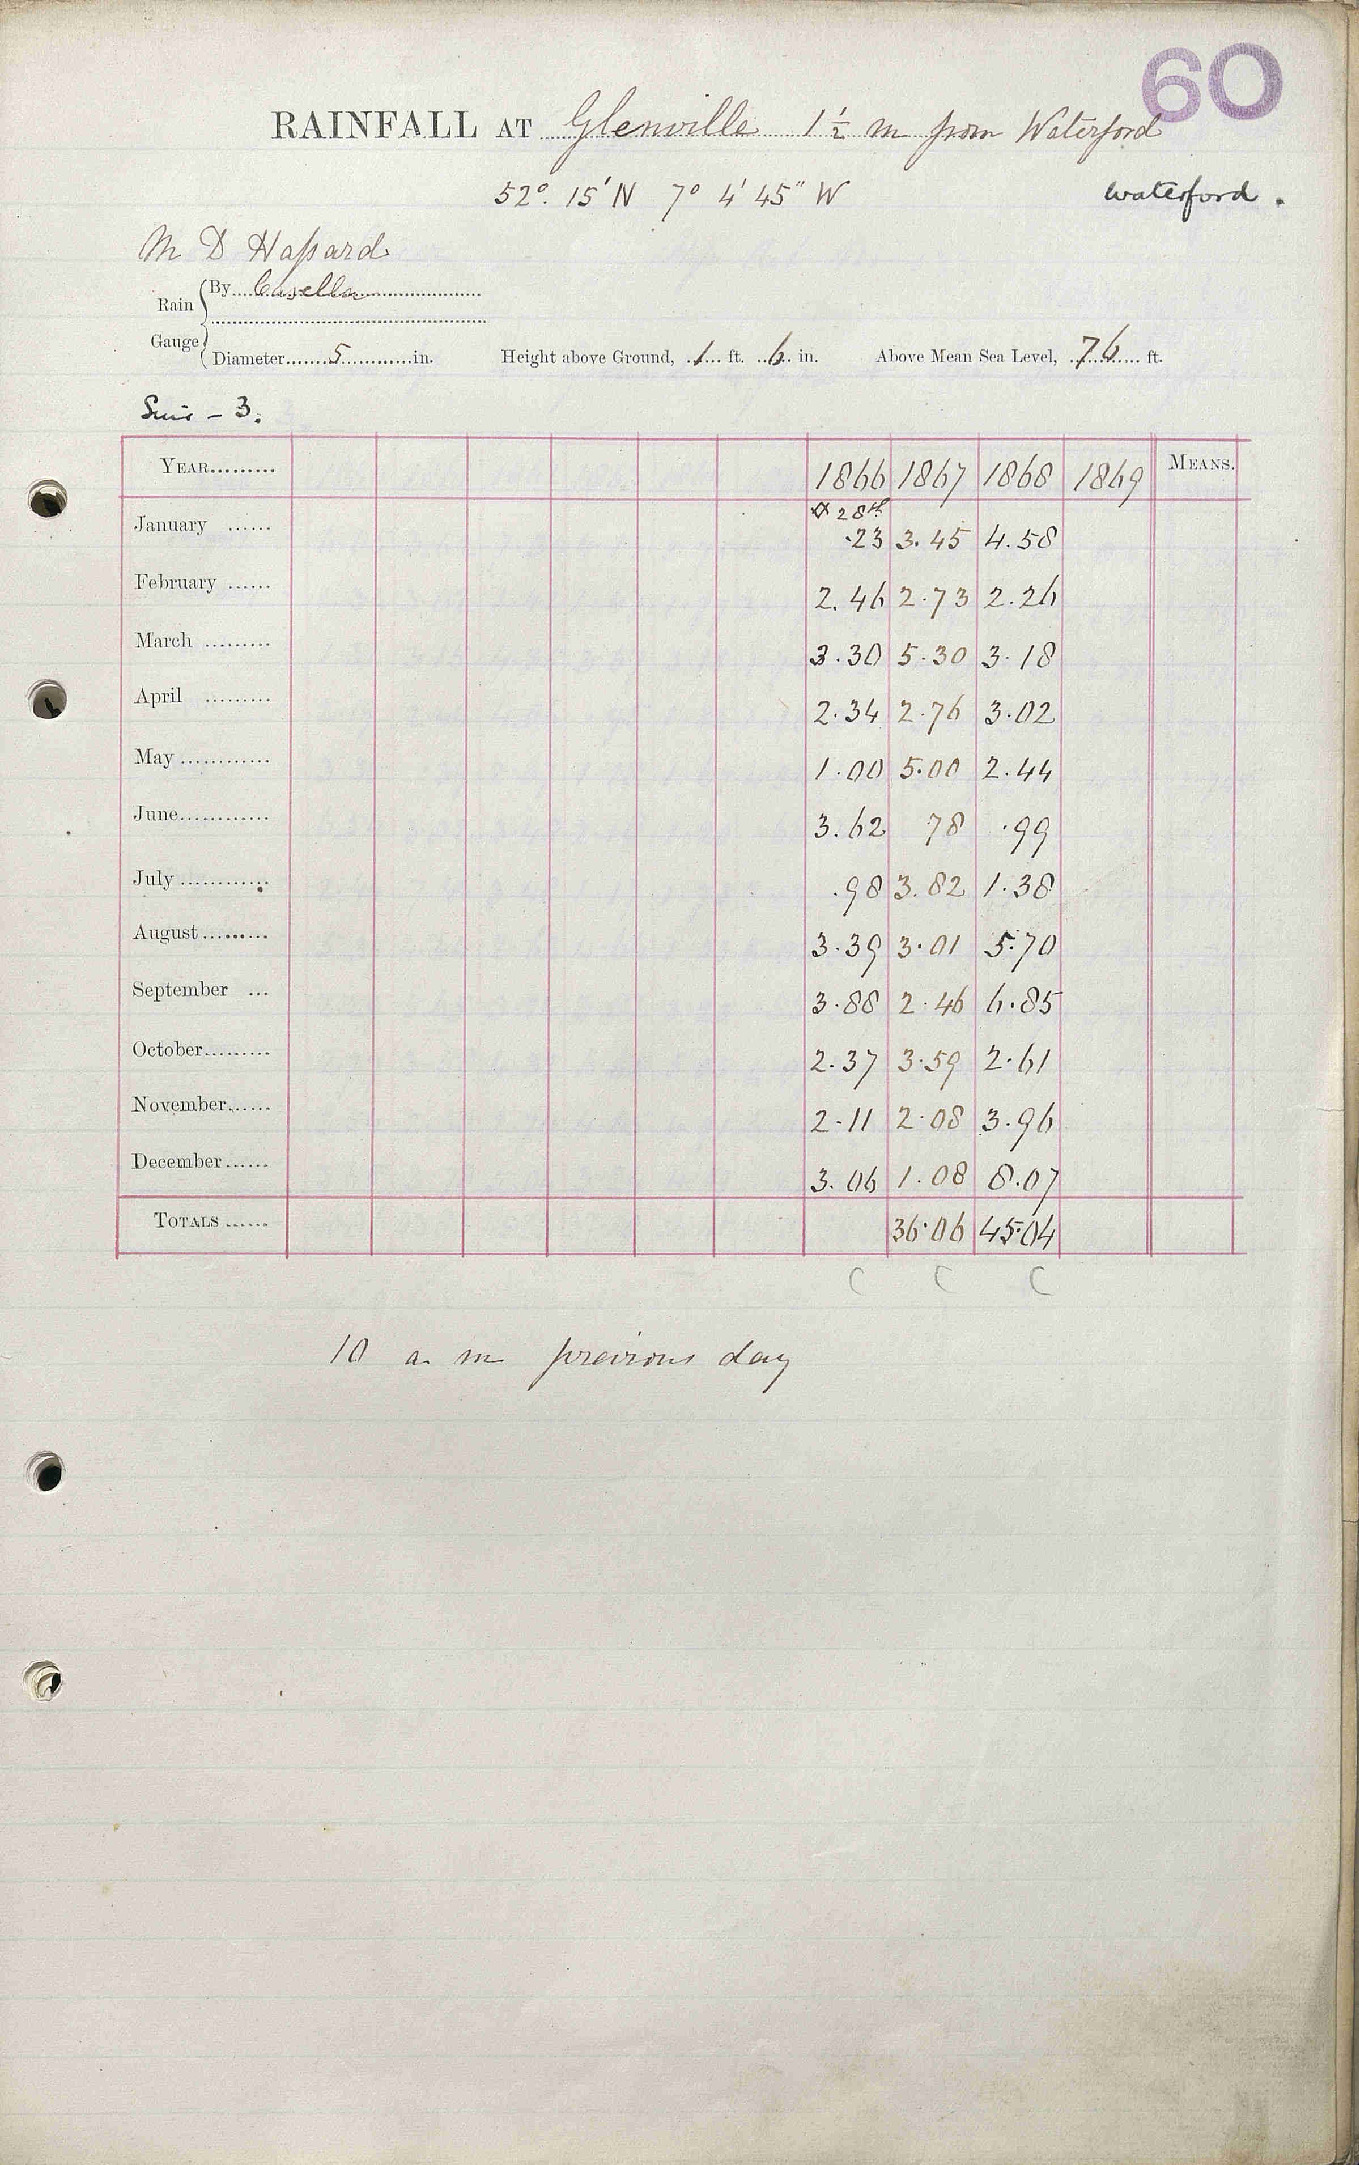 60
RAINFALL AT Glenville 1½ m from Waterford
52° 15' N 7° 4' 45" W
Waterford.
M D Hassard
Rain Gauge By Casella
Diameter 5 in. Height above Ground, 1 ft. 6 in. Above Mean Sea Level, 76 ft.
Suir - 3.
YEAR 1866 1867 1868 1869 MEANS.
28th
January .23 3.45 4.58
February 2.46 2.73 2.26
March 3.30 5.30 3.18
April 2.34 2.76 3.02
May 1.00 5.00 2.44
June 3.62 78 .99
July .98 3.82 1.38
August 3.39 3.01 5.70
September 3.88 2.46 6.85
October 2.37 3.59 2.61
November 2.11 2.08 3.96
December 3.06 1.08 8.07
TOTALS 36.06 45.04
C C C
10 a. m previous day